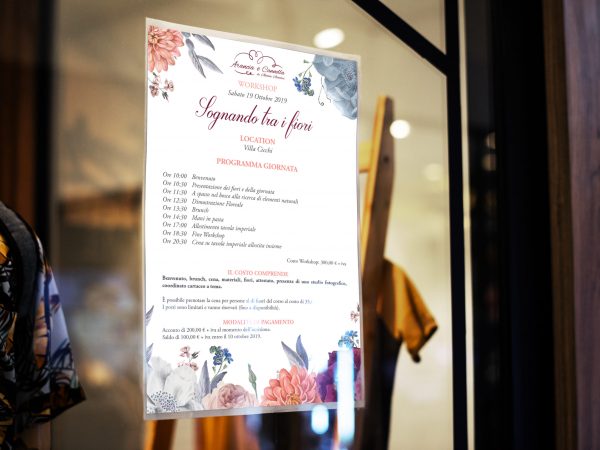 Arancia e Cannella
WORKSHOP
Sabato 19 Ottobre 2019
Sognando tra i fiori
LOCATION
Villa Cicchi
PROGRAMMA GIORNATA
Ore 10:00 Benvenuto
Ore 10:30 Presentazione dei fiori e della giornata
Ore 11:30 A spasso nel bosco alla ricerca di elementi naturali
Ore 12:30 Dimostrazione Floreale
Ore 13:30 Brunch
Ore 14:30 Mani in pasta
Ore 17:00 Allestimento tavola imperiale
Ore 18:30 Fine Workshop
Ore 20:30 Cena su tavola imperiale allestita insieme
Costo Workshop: 300,00 € + iva
IL COSTO COMPRENDE
Benvenuto, brunch, cena, materiali, fiori, attestato, presenza di uno studio fotografico,
coordinato cartaceo a tema.
È possibile prenotare la cena per persone al di fuori del corso al costo di
I posti sono limitati e vanno riservati (fino a disponibilità).
MODALITÀ DI PAGAMENTO
Acconto di 200,00 € + iva al momento dell'iscrizione.
Saldo di 100,00 € + iva entro il 10 ottobre 2019.